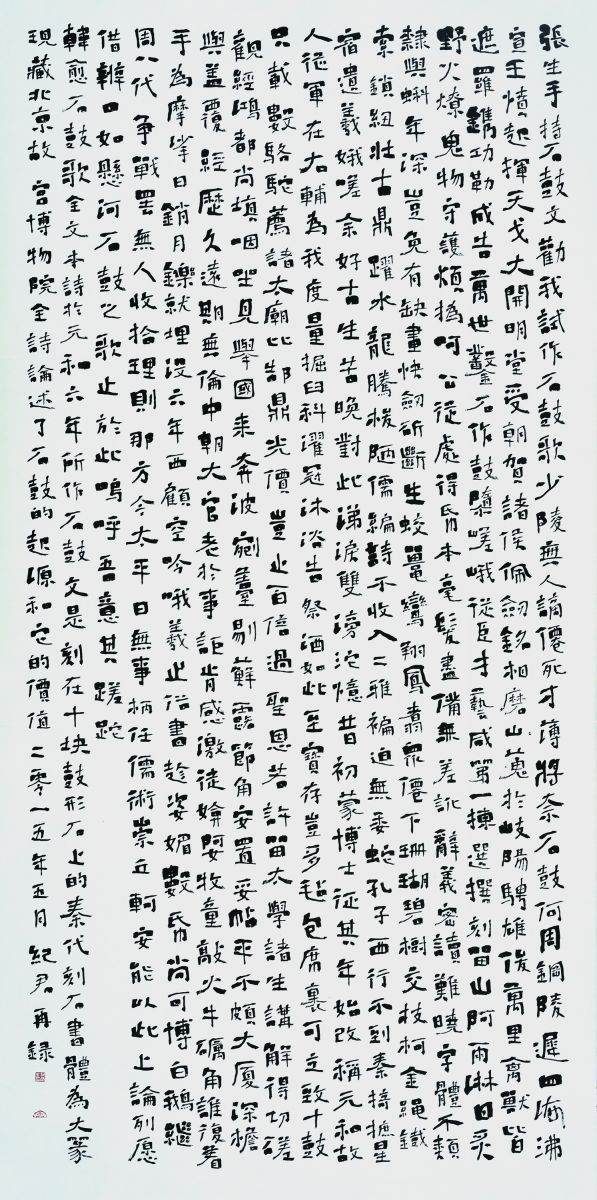 張生手持石鼓文勸我試作石鼓歌少陵無人謫僊死才薄將奈石鼓何周綱陵遲四海沸
宣王憤起揮天戈大開明堂受朝賀諸侯佩劍銘相磨山蒐於岐陽騁雄俊萬里禽獸皆
遮羅鐫功勒成告萬世鑿石作鼓隳嵯峨從臣才藝咸第一揀選撰刻留山阿雨淋日炙
野火燎鬼物守護煩撝呵公從處得紙本毫髮盡備無差訛辭義密讀難曉字體不類
隸與蝌年深豈免有缺畫快劍斫斷生蛟鼉鸞翔鳳翥眾僊下珊瑚碧樹交枝柯金繩鐵
索鎖紐壯古鼎躍水龍騰梭陋儒編詩不收入二雅褊迫無委蛇孔子西行不到秦掎摭星
宿遺羲娥嗟余好古生苦晚對此涕淚雙滂沱憶昔初蒙博士征其年始改稱元和故
人從軍在右輔為我度量掘臼科濯冠沐浴告祭酒如此至寶存豈多氈包席裹可立致十鼓
只載數駱駝薦諸太廟比郜鼎光價豈止百倍過聖恩若許留太學諸生講解得切磋
觀經鴻都尚填咽坐見舉國來奔波剜蘚剔蘚露節角安置妥帖平不頗大廈深檐
與蓋覆經歷久遠期無倫中朝大官老於事詎肯感激徒媕婀牧童敲火牛礪角誰復著
手為摩挲日銷月鑠就埋沒六年西顧空吟哦羲之俗書趁姿媚數紙尚可博白鵝繼
周八代爭戰罷無人收拾理則那方今太平日無事柄任儒術崇丘軻安能以此上論列愿
借辯口如懸河石鼓之歌止於此嗚呼吾意其蹉跎
韓愈石鼓歌全文本詩於元和六年所作石鼓文是刻在十塊鼓形石上的秦代刻石書體為大篆
現藏北京故宮博物院全詩論述了石鼓的起源和它的價值二零一五年五月紀君再錄